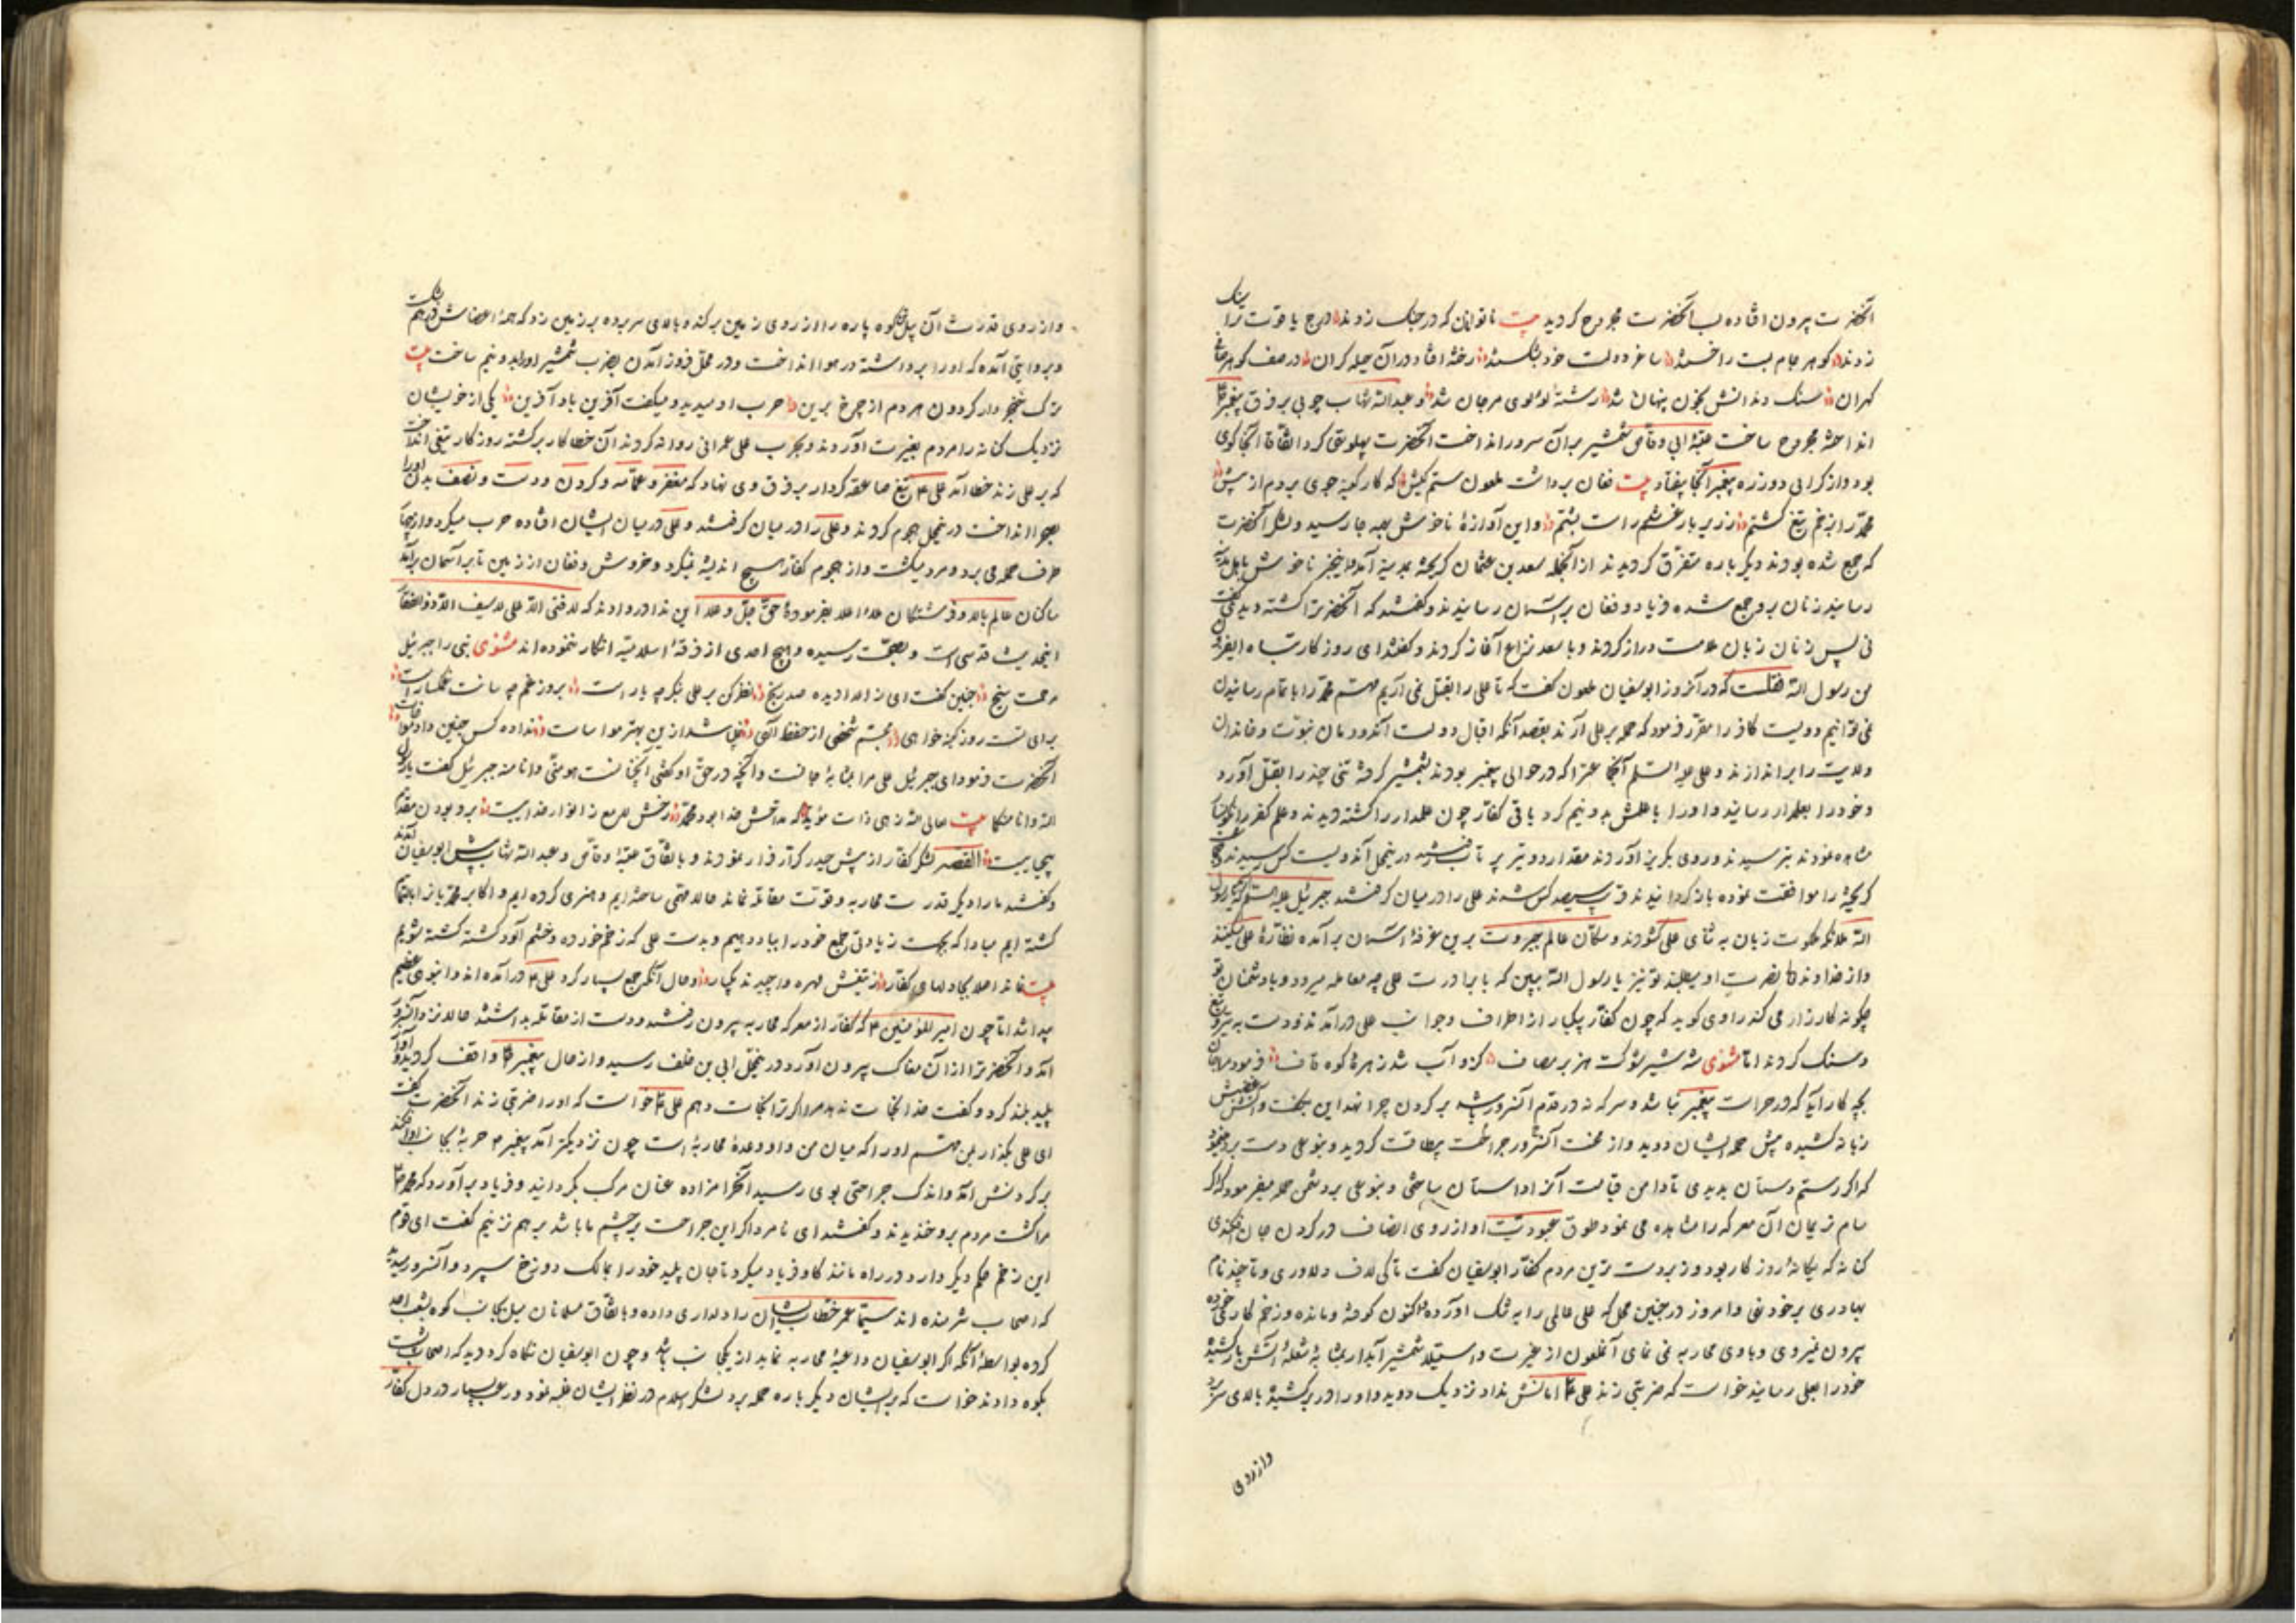 آنحضرت بیرون افتاده لب آنحضرت مجروح گردید بیت ناتوانان که در جنگ زدند درج یاقوت ترا سنگ
زدند گوهر جام بست را خستند ساغر دولت خود بشکستند رخنه افتاد در آن حیله کران در صف گوهر
گهران سنگ دندانش بخون پنهان شد رشته لولوی مرجان شد و عبدالله شهاب چوبی بر فرق پیغمبر
انداخته مجروح ساخت عتبه ابی وقاص شمشیر بر آن سرور انداخت آنحضرت پهلوتهی کرد اتفاقا آنجا کوی
بود و از گرانی دو زره پیغمبر آنجا بیفتاد بیت فغان برداشت ملعون ستم کیش که کار کینه جوی بردم از پیش
محمد را بزخم تیغ کشتم ز زیر بار غم شد راست پشتم و این آوازه ناخوش بهمه جا رسید و لشکر آنحضرت
که جمع شده بودند دیگر باره متفرق گردیدند از آنجمله سعد بن عثمان گریخته بمدینه آمد و این خبر ناخوش باهل مدینه
رسانید زنان برو جمع شده فریاد و فغان بر آسمان رسانیدند و گفتند که آنحضرت را کشته دیدی گفت
نی پس زنان زبان ملامت دراز کردند و با سعد نزاع آغاز کردند و گفتند ای روزگار تباه
من رسول الله نقلست که در آنروز ابوسفیان ملعون گفت که تا علی را بقتل نمی آریم مهم محمد را باتمام رسانیدن
نمی توانیم دویست کافر را مقرر فرمود که حمله بر علی آرند بقصد آنکه اقبال دولت آن دودمان نبوت و خاندان
ولایت را براندازند و علی علیه السلم آنجا که در حوالی پیغمبر بودند بشمشیر گرفته تنی چند را بقتل آورد
و خود را بعلمدار رسانید و او را با علمش بدو نیم کرد باقی کفار چون علمدار را کشته دیدند و علم کفر را نگونسار
مشاهده نمودند بترسیدند و روی بگریز آوردند مقدار دو تیر پرتاب رفتند درین محل دویست کس رسیدند
گریخته را موافقت نموده بازگردانیدند قریب سیصد کس شدند علی را در میان گرفتند جبرئیل علیه السلم گفت یا رسول
الله ملائکه ملکوت زبان به ثنای علی گشودند و سکان عالم جبروت برین غرفه آسمان برآمده نظاره علی میکنند
و از خداوند نصرت او میطلبند تو نیز یا رسول الله ببین که با برادرت علی چه معامله میرود و با دشمنان تو
چگونه کارزار می کند راوی گوید که چون کفار یکبار از اطراف و جوانب علی درآمدند و دست به تیر و تیغ
و سنگ کردند اما مثنوی شه شیر شوکت هزبر مصاف کزو آب شد زهره کوه قاف فرمود
بچه کار آید که در حراست پیغمبر نباشد و سر که نه در قدم آن سرور باشد بر گردن چرا نهد این بگفت و آتش غضبش
زبانه کشیده پیش حمله ایشان دوید و از محنت آن سرور جراحت بیطاقت گردید و بنوعی دست برد نمود
که اگر رستم دستان بدیدی تا دامن قیامت آنرا داستان ساختی و بنوعی بر دشمن حمله میفرمود که اگر
سام نریمان آن معرکه را مشاهده می نمود طوق عبودیت او از روی انصاف در گردن جان فکندی
کنانه که یگانه روزگار بود و زبردست ترین مردم کفار ابوسفیان گفت تا کی لاف دلاوری و تا چند نام
بهادری بر خود نهی و امروز در چنین محل که علی عالی را به تنگ آورده اکنون کوفته و مانده و زخم کاری خورده
بیرون نمیروی و با وی محاربه نمی نمای آن ملعون از غیرت و استیلا شمشیر آبدار بمثابه شعله آتش بارکشیده
خود را بعلی رسانید خواست که ضربتی زند علی امانش نداد نزدیک دوید و او را در بر کشیده بالای سر برد
و از روی
و از روی قدرت آن پیل شکوه پاره را از روی زمین برکند و بالای سر برده بر زمین زد که همه اعضاش در هم شکست
و بروایتی آمده که او را برداشته در هوا انداخت و در محل فرود آمدن بضرب شمشیر او را بدو نیم ساخت بیت
ترک خنجر دار گردون هر دم از چرخ برین حرب او میدید و میگفت آفرین باد آفرین یکی از خویشان
نزدیک کنانه را مردم بغیرت آوردند و بحرب علی عمرانی روانه کردند آن خطاکار برگشته روزگار تیغی انداخت
که بر علی زند خطا آمد علی تیغ صاعقه کردار بر فرق وی نهاد که مغفر و عمامه و گردن و دست و نصف بدن او را
بصحرا انداخت درین محل هجوم کردند و علی را در میان گرفتند و علی در میان ایشان افتاده حرب میکرد و از هر جانب
طرف حمله می برد و مرد میکشت و از هجوم کفار هیچ اندیشه نمیکرد و خروش و فغان از زمین تا بر آسمان برآمد
ساکنان عالم بالا و فرشتگان ملاء اعلا بفرموده حق جل و علا این ندا در دادند که لا فتی الا علی لا سیف الا ذوالفقار
اینحدیث قدسی است و بصحت رسیده و هیچ احدی از فرقه اسلامیه انکار ننموده اند مثنوی نبی را جبرئیل
مرحمت سنج چنین گفت ای زاعدا دیده صد رنج نظر کن بر علی بنگر چه یار است بروز غم چه سانت غمگسار است
برای تست روز کینه خواهی مجسم شخصی از حفظ الهی نباشد ازین بهتر مواسات نداده کس چنین داد مواسات
آنحضرت فرمود ای جبرئیل علی مرا بمثابه جانست و آنچه در حق او گفتی آنچنانست هو منی و انا منه جبرئیل گفت یا رسول
الله و انا منکما بیت عالی الله زهی ذات مؤید که مداحش خدا بود محمد رخش لامع ز انوار خداییست برو بودن مقدم
بیحیاییست القصه لشکر کفار از پیش حیدر کرار فرار نمودند و باتفاق عتبه وقاص و عبدالله شهاب پیش ابوسفیان آمدند
و گفتند ما را دیگر قدرت محاربه و قوت مقاتله نماند حالا مهمی ساخته ایم و هنری کرده ایم و اکابر محمد را
کشته ایم مبادا که بجهت زیادتی جمع خود را بباد دهیم و بدست علی که زخم خورده و خشم آلود گشته کشته شویم
بیت نماند اصلا بجا دلهای کفار ز تیغش مهره واچیدند یکبار و حال آنکه جمع بسیار گرد علی درآمده اند و انبوهی عظیم
پیدا شد اما چون امیرالمؤمنین که کفار از معرکه محاربه بیرون رفتند و دست از مقاتله بداشتند حالا نزد آنسرور
آمد و آنحضرت را از آن مغاک بیرون آورد و درین محل ابی بن خلف رسید و از حال پیغمبر واقف گردید و آواز
پلید بلند کرد و گفت خدا نجات ندهد مرا اگر ترا نجات دهم علی خواست که او را ضربتی زند آنحضرت گفت
ای علی بگذار بمن مهم او را که میان من و او وعده محاربه است چون نزدیکتر آمد پیغمبر حربه بجانب او افکند
بر گردنش آمد و اندک جراحتی بوی رسید آن حرامزاده عنان مرکب بگردانید و فریاد برآورد که محمد
مرا کشت مردم برو خندیدند و گفتند ای نامرد اگر این جراحت بر چشم ما باشد بر هم نزنیم گفت ای قوم
این زخم حکم دیگر دارد و در راه مانند گاو فریاد میکرد تا جان پلید خود را بمالک دوزخ سپرد و آنسرور رسید
که اصحاب شرمنده اند سیما عمر خطاب ایشان را دلداری داده و باتفاق مسلمانان میل بجانب کوه بشعب احد
کرده بواسطه آنکه اگر ابوسفیان داعیه محاربه نماید از یکجانب باشد و چون ابوسفیان نگاه کرد دید که اصحاب پشت
بکوه دادند خواست که بر ایشان دیگر باره حمله برد لشکر اسلام در نظر ایشان غلبه نمود و رعب بسیار در دل کفار